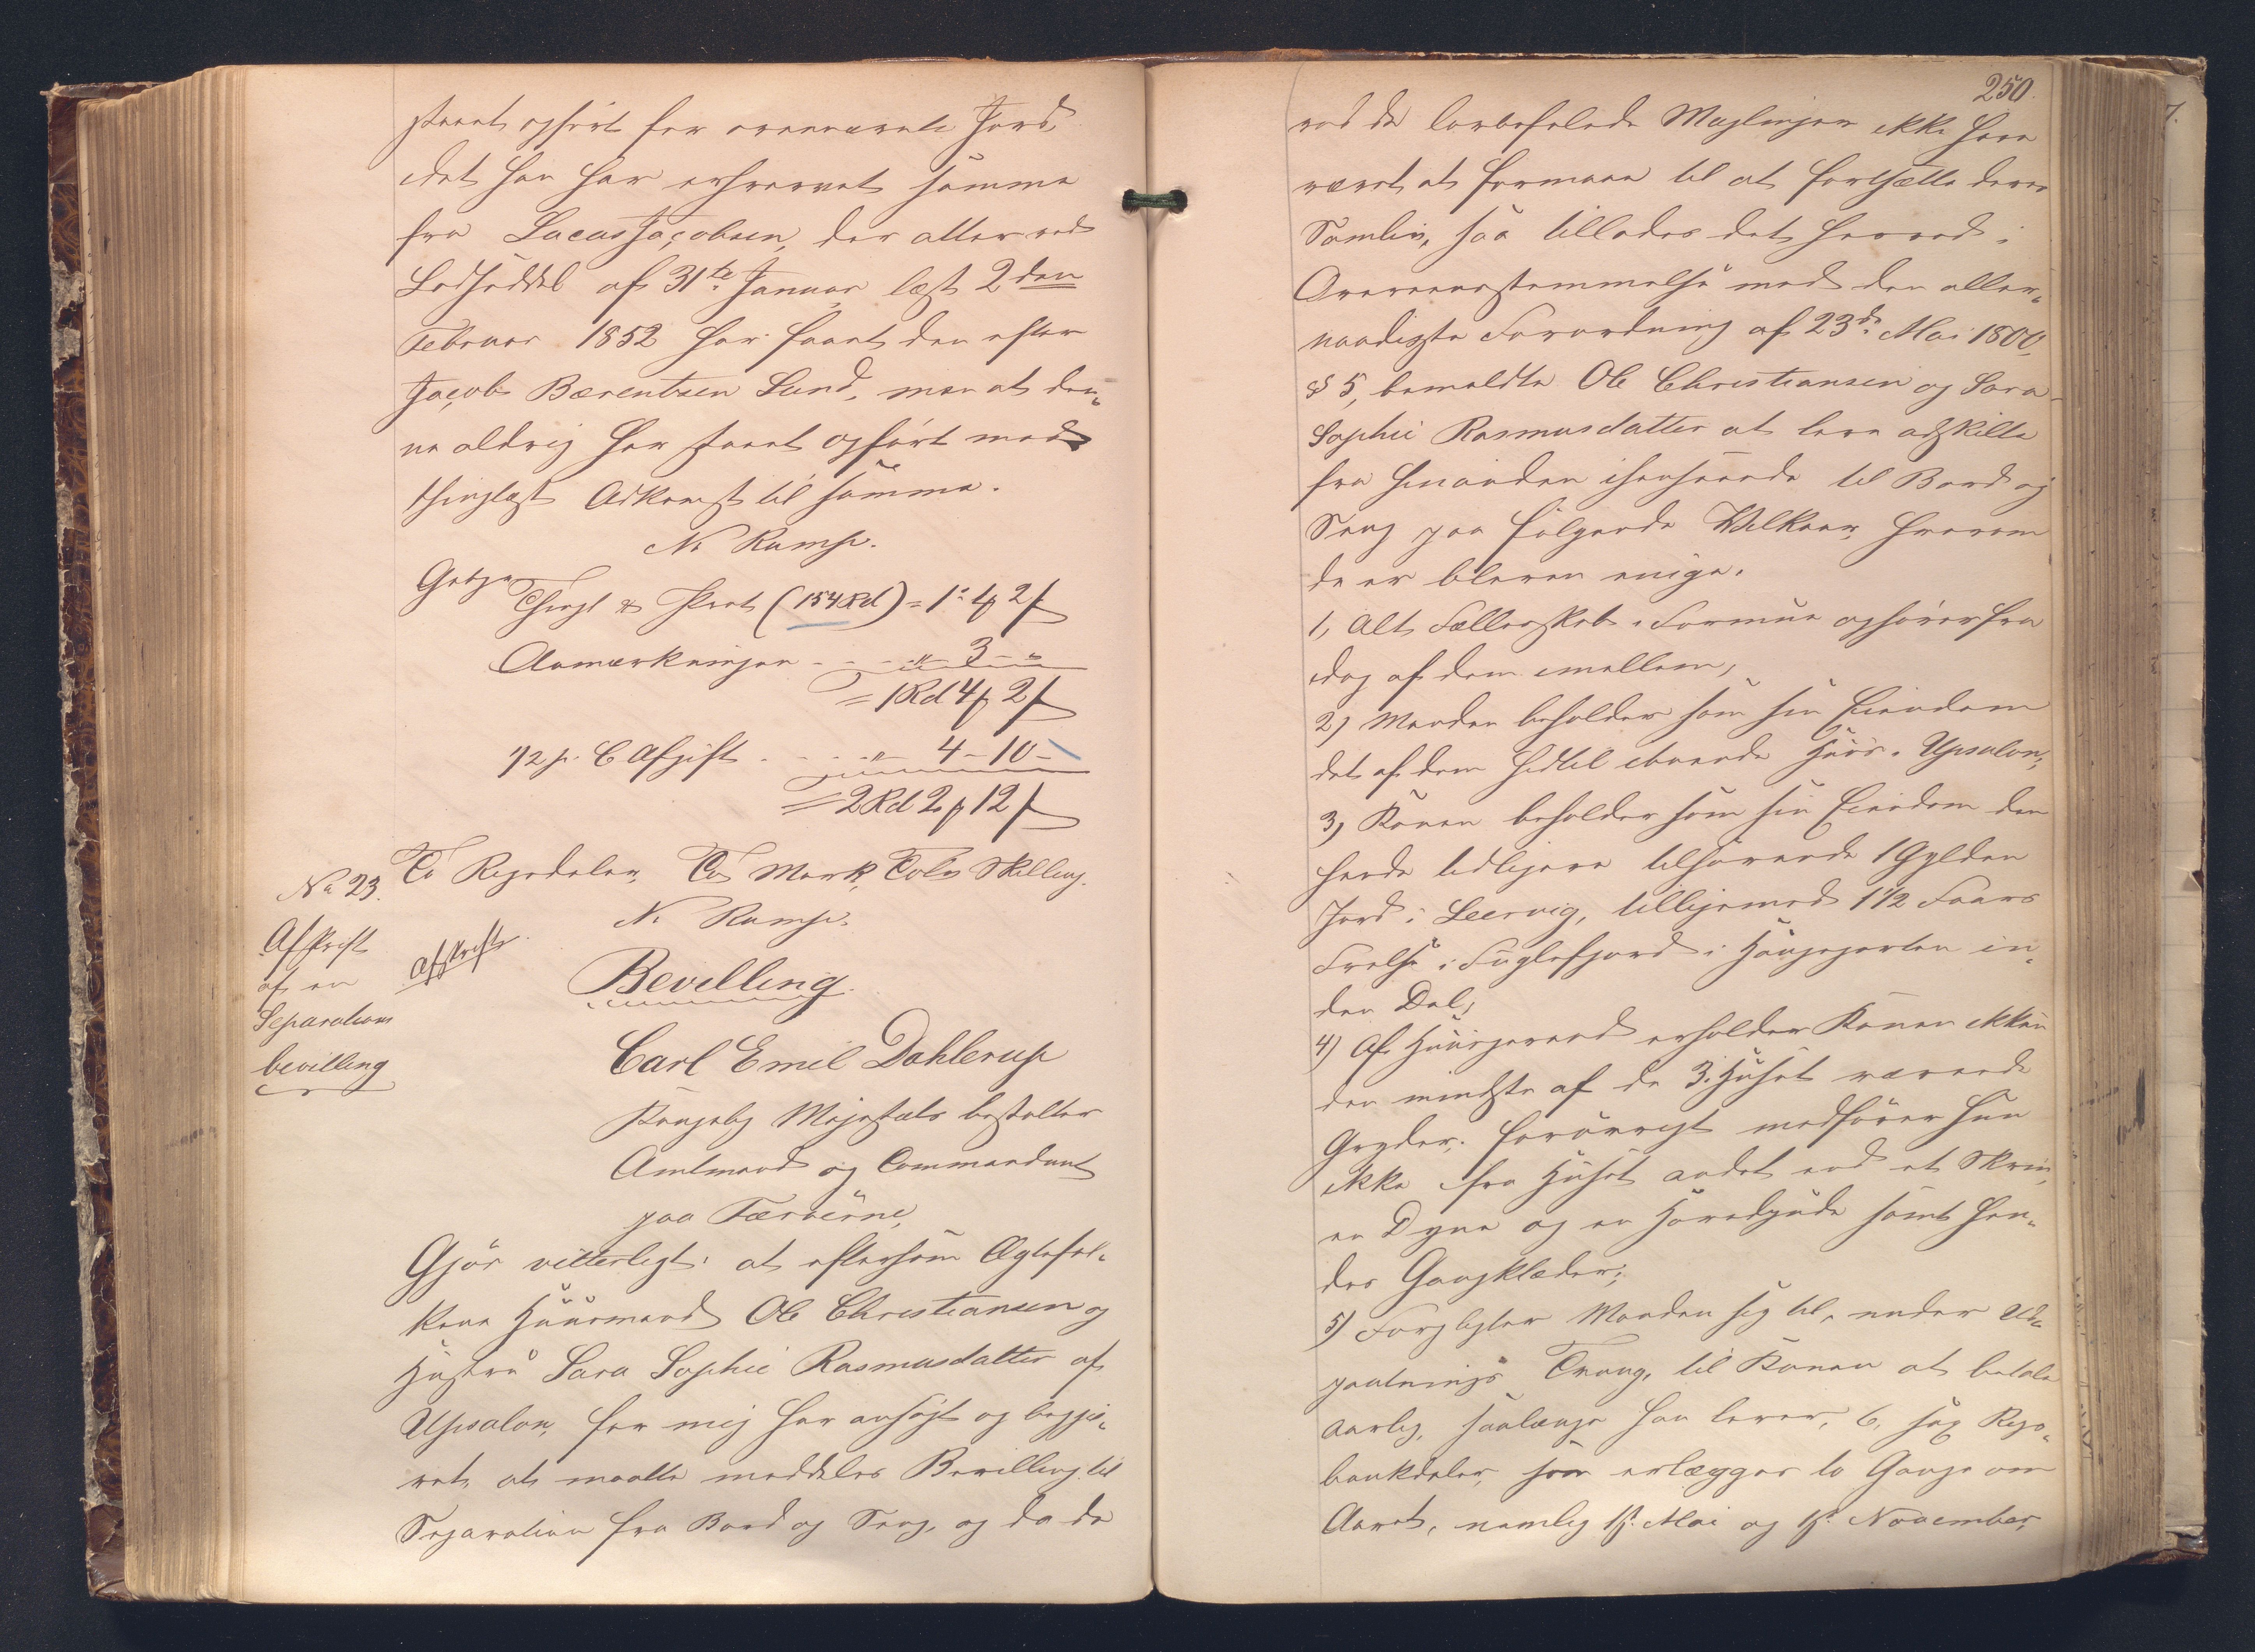 staaet opført for ovennævnte Jord,
idet han har erhvervet samme
fra Lucas Jacobsen, der atter ved
Lodseddel af 31te Januar læst 2den
Februar 1852 har faaet den efter
Jacob Bærentsen Lund, men at den-
ne aldrig har staaet opført med
thinglæst Adkomst til samme.
N. Ramsh.
Gebyr
Thingl & Prot (154 Rd) = 1" 4 ₰ 2 ß
Anmærkningen - - - " - 3 - "
= 1 Rd 4 ₰ 2 ß
1/2 p. C Afgift . - - . " - 4 - 10 -
= 2 Rd 2 ₰ 12 ß
To Rigsdaler, To Mark, Tolv Skilling.
N. Ramsh.
No 23.
Afskrift
af en
Separations
bevilling
Afskrift.
Bevilling.
Carl Emil Dahlerup
Kongelig Majestæts bestalter
Amtmand og Commandant
paa Færøerne,
Gjør vitterligt: at eftersom Ægtefol-
kene Huusmand Ole Christiansen og
Hustru Sara Sophie Rasmusdatter af
Upsalon, for mig har ansøgt og begjæ-
ret, at maatte meddeles Bevilling til
Separation fra Bord og Seng, og da de
250.
ved de lovbefalede Mæglinger ikke have
været at formaae til at fortsætte deres
Samliv, saa tillades det herved i
Overeensstemmelse med den aller-
naadigste Forordning af 23de Mai 1800,
§ 5, bemeldte Ole Christiansen og Sara
Sophie Rasmusdatter at leve adskilte
fra hinanden i henseende til Bord og
Seng paa følgende Vilkaar, hvorom
de er bleven enige.
1, Alt Fællesskab i Formue ophører fra
idag af dem imellem,
2) Manden beholder som sin Eiendom
det af dem hidtil eiende Huus i Upsalon;
3) Konen beholder som sin Eiendom den
hende tidligere tilhørende 1 Gylden
Jord i Leervig, tilligemed 1 1/2 Faars
Frelse i Fuglefjord i Haugeparten in-
den Dal;
4) Af Huusgeraad erholder Konen ikkun
den mindste af de 3 i Huset værende
Gryder; forøvrigt medfører hun
ikke fra Huset andet end et Skrin,
en Dyne og en Hovedpude samt hen-
des Gangklæder;
5) Forpligter Manden sig til, under Ud-
pantnings Tvang, til Konen at betale
aarlig, saalænge han lever, 6, sex Rigs-
bankdaler, som erlægges to Gange om
Aaret, nemlig 1st Mai og 1st November,